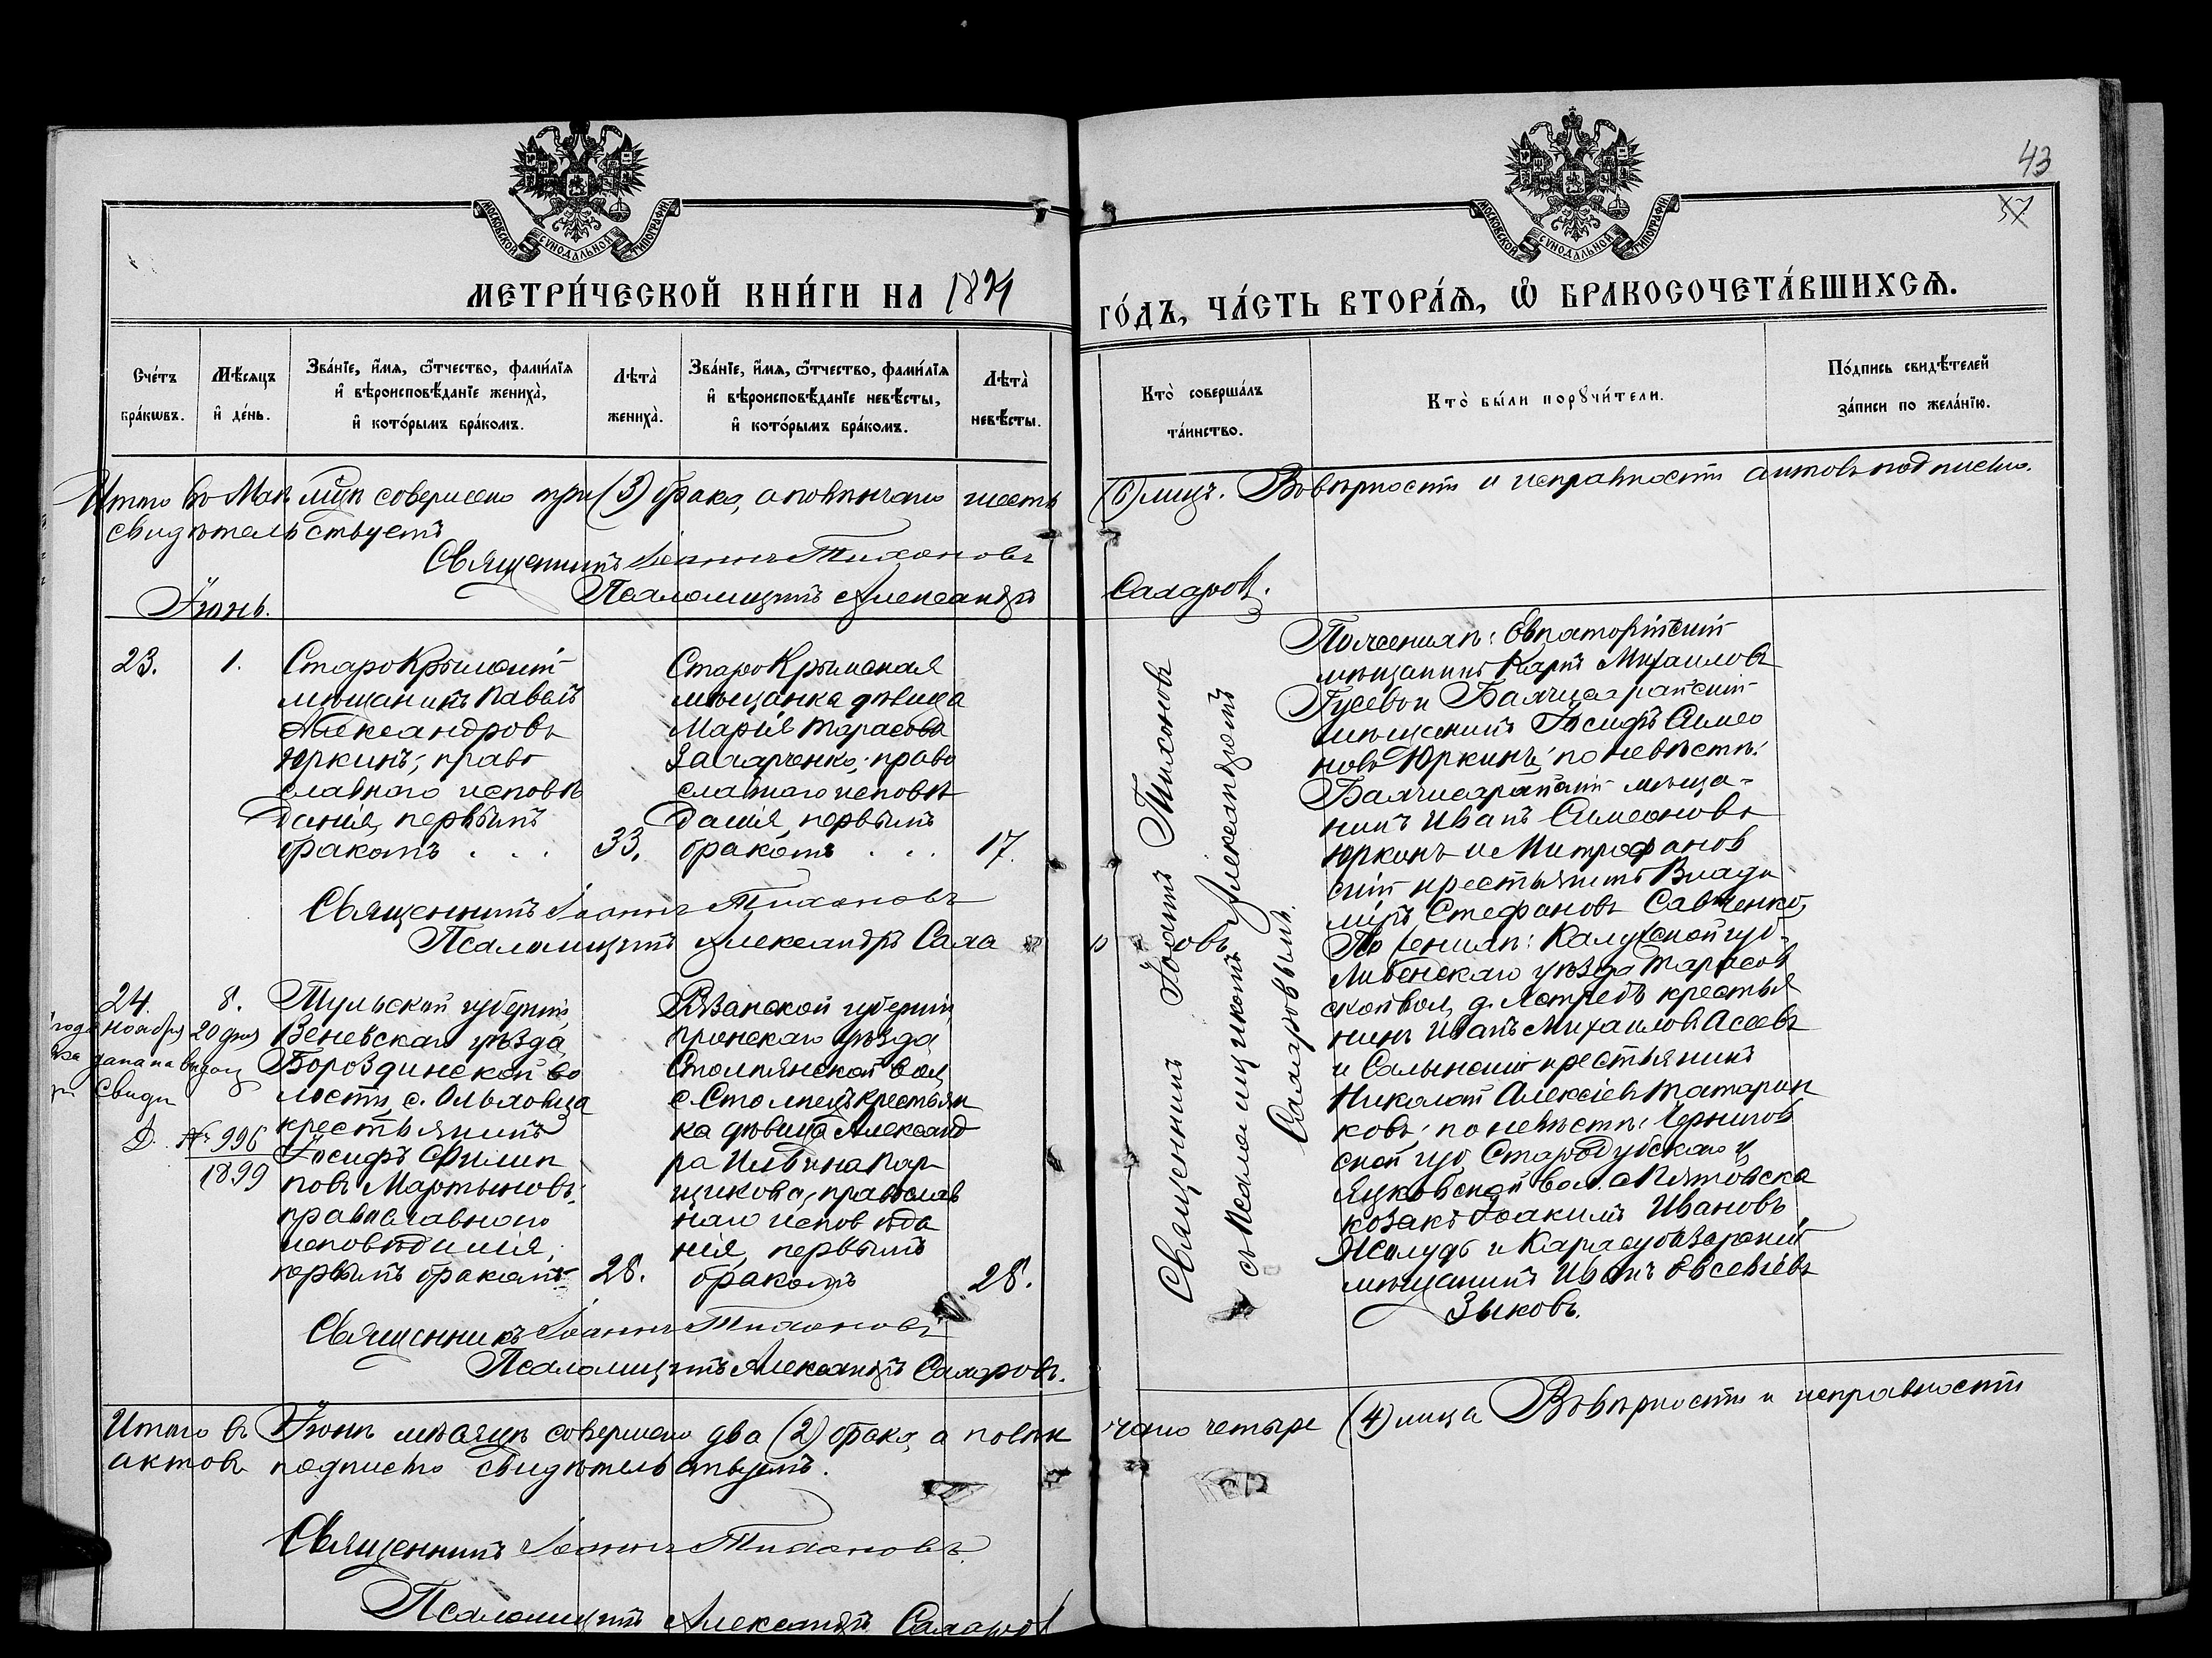 43
57
МОСКОВСКОЙ СѴНОДАЛЬНОЙ ТИПОГРАФІИ
МОСКОВСКОЙ СѴНОДАЛЬНОЙ ТИПОГРАФІИ
МЕТРИ́ЧЕСКОЙ КНИ́ГИ НА
ГО́ДЪ, ЧА́СТЬ ВТОРА́Ѧ, Ѽ БРАКОСОЧЕТА́ВШИХСѦ.
Сче́тъ бра́кѡвъ.
Мѣ́сяцъ и҆ де́нь.
Зва́нїе, и҆́мѧ, ѻ҆́тчество, фами́лїѧ
и҆ вѣроисповѣ́данїе жениха̀,
и҆ кото́рымъ бра́комъ.
Лѣта̀ жениха̀.
Зва́нїе, и҆́мѧ, ѻ҆́тчество, фами́лїѧ
и҆ вѣроисповѣ́данїе невѣ́сты,
и҆ кото́рымъ бра́комъ.
Лѣта̀ невѣ́сты.
Кто̀ соверша́лъ та́инство.
Кто̀ бы́ли порꙋчи́тели.
По́дпись свидѣ́телей
за́писи по жела́нїю.
Итого въ Маѣ мцѣ совершено три (3) брака, а повѣнчано шесть (6) лицъ. Въ вѣрности и исправности актовъ подписью
свидѣтельствуетъ
Священникъ Іоаннъ Тихоновъ
Псаломщикъ Александръ Сахаровъ.
Іюнь.
23.
1.
Старокрымскій
мѣщанинъ Павелъ
Александровъ
Юркинъ, право
славнаго исповѣ
данія, первымъ
бракомъ . . .
33.
Старокрымская
мѣщанка дѣвица
Марія Тарасова
Захарченко, право
славнаго исповѣ
данія, первымъ
бракомъ . . .
17.
Священникъ Іоаннъ Тихоновъ
съ псаломщикомъ Александромъ
Сахаровымъ.
По женихѣ: Евпаторійскій
мѣщанинъ Карпъ Михаиловъ
Гусевъ и Бахчисарайскій
мѣщанинъ Іосифъ Симео
новъ Юркинъ; по невѣстѣ:
Бахчисарайскій мѣща-
нинъ Иванъ Симеоновъ
Юркинъ и Митрофанов
скій крестьянинъ Влади
міръ Стефановъ Савченко,
Священникъ Іоаннъ Тихоновъ
Псаломщикъ Александръ Сахаровъ
24.
8.
ноября 20 дня
дана
Свидѣ
Д. № 996
1899
Тульской губерніи,
Веневскаго уѣзда,
Бороздинской во
лости, с. Ольховца
крестьянинъ
Іосифъ Филип
повъ Мартыновъ,
православнаго
исповѣданія,
первымъ бракомъ
28.
Рязанской губерніи,
Пронскаго уѣзда
Столпянской вол.
с. Столпецъ крестьян
ка дѣвица Александ
ра Ильина Пар
щикова, православ
наго исповѣда
нія, первымъ
бракомъ
28.
По женихѣ: Калужской губ.
уѣзда Тарасов
ской вол., д. Ястребъ крестья
нинъ Иванъ Михаиловъ Асеевъ
и Салынскій крестьянинъ
Николай Алексіевъ Татарин
ковъ; по невѣстѣ: Чернигов
ской губ. Стародубскаго у.
козакъ Іоакимъ Ивановъ
и Карасубазарскій
мѣщанинъ Иванъ Евсевіевъ
Зыковъ.
Священникъ Іоаннъ Тихоновъ
Псаломщикъ Александръ Сахаровъ.
Итого въ Іюнѣ мѣсяцѣ совершено два (2) брака, а повѣн чано четыре (4) лица. Въ вѣрности и исправности
актовъ подписью свидѣтельствуетъ.
Священникъ Іоаннъ Тихоновъ.
Псаломщикъ Александръ Сахаровъ